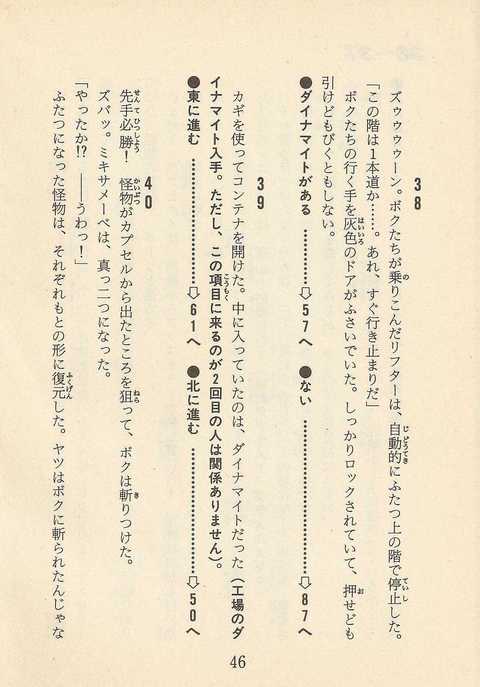 38
ズゥゥゥゥーン。ボクたちが乗りこんだリフターは、自動的にふたつ上の階で停止した。
「この階は1本道か……。あれ、すぐ行き止まりだ」
ボクたちの行く手を灰色のドアがふさいでいた。しっかりロックされていて、押せども
引けどもびくともしない。
●ダイナマイトがある…………⇨57へ ●ない…………⇨87へ
39
カギを使ってコンテナを開けた。中に入っていたのは、ダイナマイトだった(工場のダ
イナマイト入手。ただし、この項目に来るのが2回目の人は関係ありません)。
●東に進む…………⇨61へ ●北に進む…………⇨50へ
40
先手必勝! 怪物がカプセルから出たところを狙って、ボクは斬りつけた。
ズバッ。ミキサメーベは、真っ二つになった。
「やったか!? ――うわっ!」
ふたつになった怪物は、それぞれもとの形に復元した。ヤツはボクに斬られたんじゃな
46